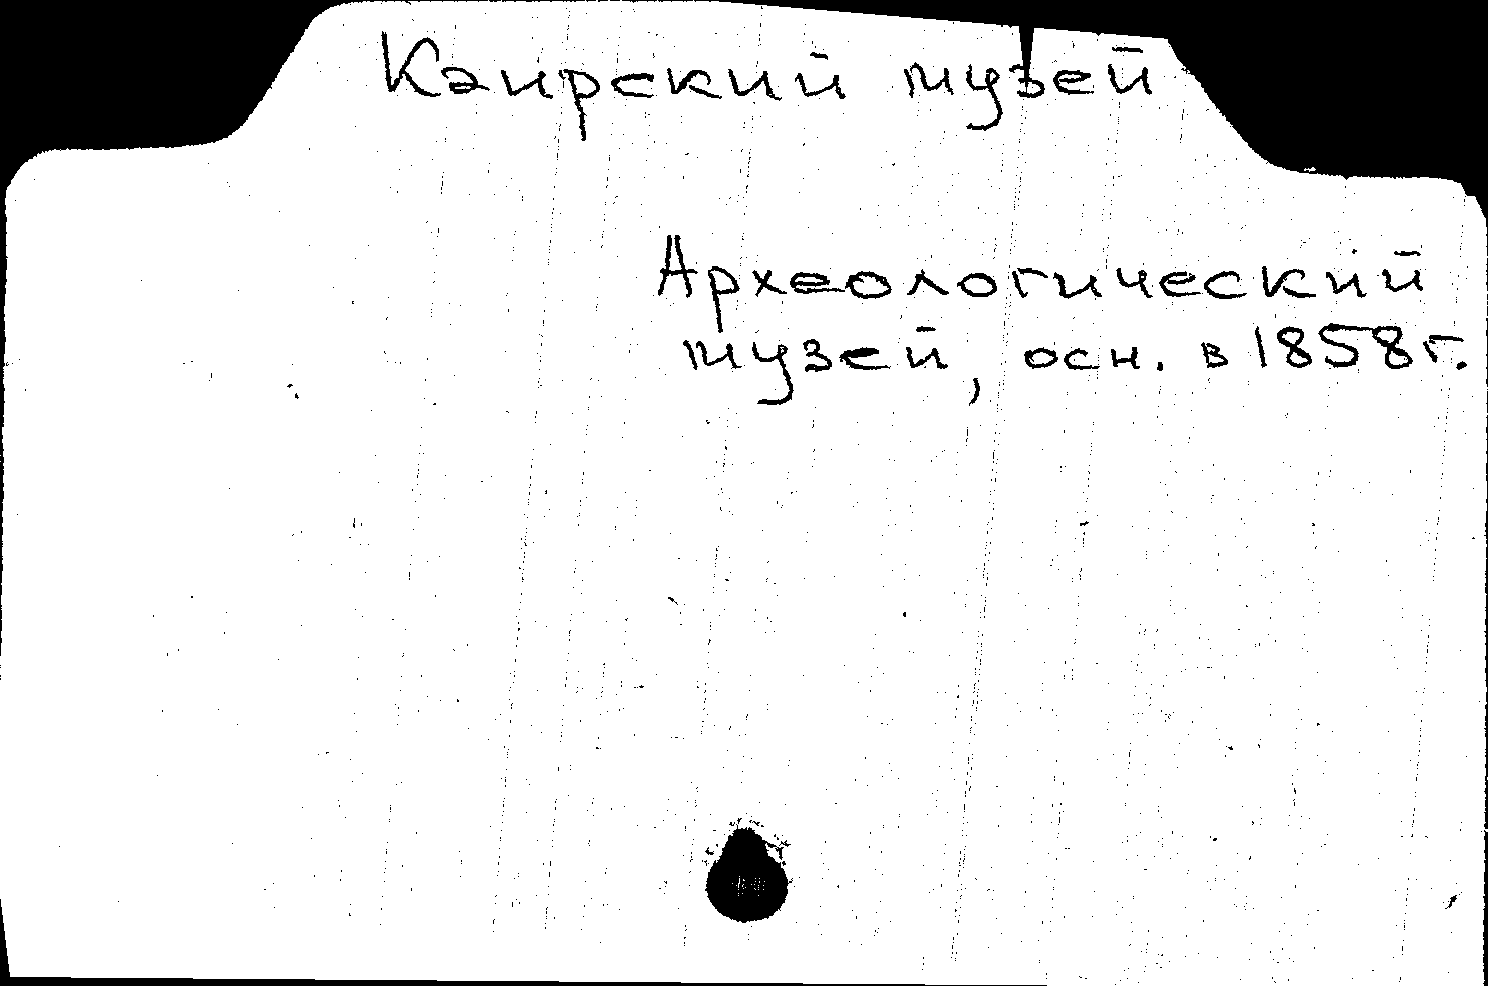 Каирский музей
Археологический
музей, осн. в 1858г.